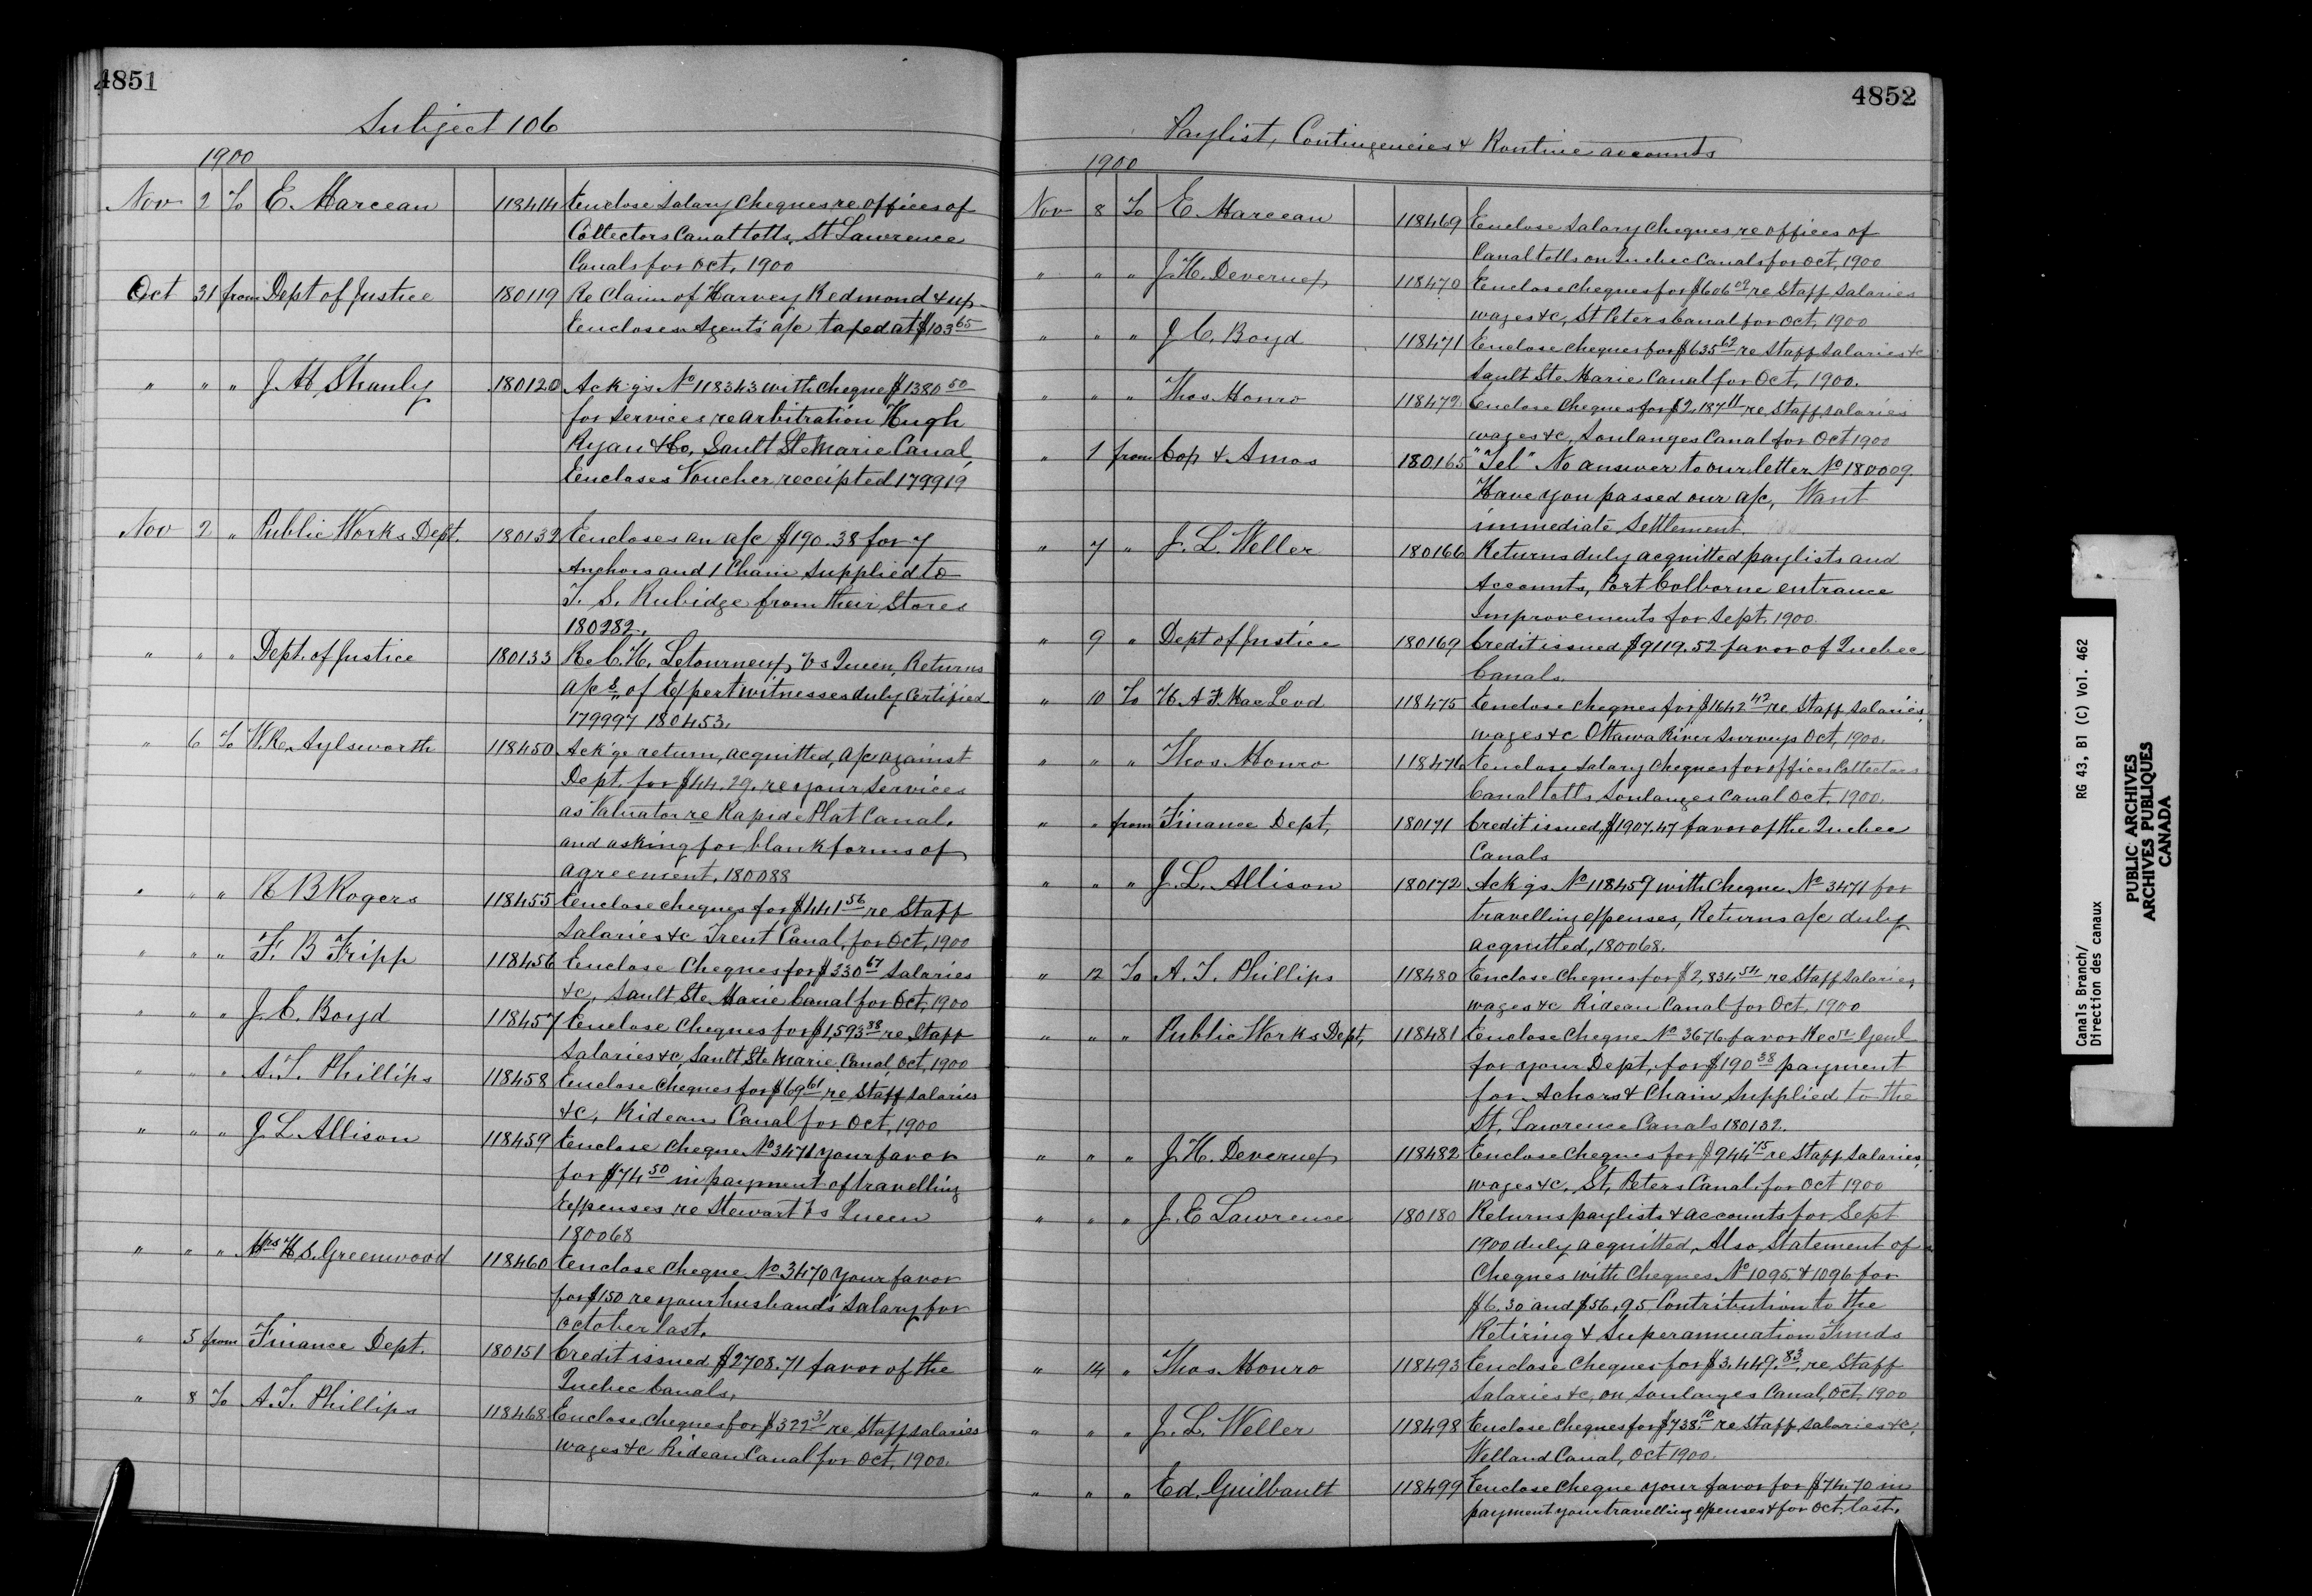 4851
Subject 106
1900
Nov 2 To E. Marceau 118414 Enclose Salary Cheques re offices of
Collectors Canal tolls, St Lawrence
Canals for Oct, 1900
Oct 31 from Dept of Justice 180119 Re Claim of Harvey Redmond & up
Encloses Agents a/c taxed at $103 65
" " " J. H Shanly 180120 Ack'gs No 118343 with cheque $1380 50
for services re arbitration Hugh
Ryan & Co, Sault Ste Marie Canal,
Encloses Voucher receipted 179919
Nov 2 " Public Works Dept. 180132 Encloses an a/c $190.38 for 7
Anchors and 1 Chain supplied to
T. S. Rubidge from their Stores
180282.
" " " Dept. of Justice 180133 Re C. H. Letourneux Vs Queen, Returns
a/cs of Expert witnesses duly certified
179997 180453.
" 6 To W. R. Aylsworth 118450 Ack'ge return, acquitted, a/c against
Dept. for $44.29. re your services
as Valuator re Rapide Plat Canal.
and asking for blank forms of
agreement, 180088
" " " R B Rogers 118455 Enclose cheques for $441 56 re Staff
Salaries &c Trent Canal, for Oct, 1900
" " " F. B Fripp 118456 Enclose Cheques for $330 67 Salaries
&c, Sault Ste Marie Canal for Oct, 1900
" " " J. C. Boyd 118457 Enclose Cheques for $1,593 38 re Staff
Salaries &c, Sault Ste Marie Canal, Oct, 1900
" " " A. T. Phillips 118458 Enclose Cheques for $69 61 re Staff salaries
&c, Rideau Canal for Oct, 1900
" " " J. L Allison 118459 Enclose Cheque No 3471 your favor
for $74 50 in payment of travelling
Expenses re Stewart Vs Queen
180068
" " " Mrs H S. Greenwood 118460 Enclose Cheque No 3470 your favor
for $150 re your husband's Salary for
October last.
" 5 from Finance Dept. 180151 Credit issued $2708.71 favor of the
Quebec Canals.
" 8 To A. T. Phillips 118468 Enclose, Cheques for $322 31 re Staff salaries
wages &c Rideau Canal for Oct, 1900.
4852
Paylist, Contingencies & Routine accounts
1900
Nov 8 To E Marceau 118469 Enclose Salary Cheques re offices of
Canal tolls on Quebec Canals for Oct, 1900
" " " J. H. Deverneux 118470 Enclose cheques for $606 09 re Staff Salaries
wages &c, St Peters Canal for Oct, 1900
" " " J C. Boyd 118471 Enclose cheques for $635 62 re Staff salaries &c
Sault Ste Marie Canal for Oct, 1900.
" " " Thos Monro 118472 Enclose Cheques for $2,187 11 re Staff salaries
wages &c, Soulanges Canal for Oct 1900
" 1 from Cop & Amos 180165 "Tel" No answer to our letter No 180009
Have you passed our a/c, Want
immediate Settlement.
" 7 " J. L. Weller 180166 Returns duly acquitted paylists and
Accounts, Port Colborne entrance
Improvements for Sept, 1900.
" 9 " Dept of Justice 180169 Credit issued $9119.52 favor of Quebec
Canals.
" 10 To H. A F. MacLeod 118475 Enclose cheques for $1642 42 re Staff salaries,
wages &c Ottawa River Surveys Oct, 1900.
" " " Thos. Monro 118476 Enclose salary Cheques for offices Collectors
Canal tolls Soulanges Canal Oct, 1900.
" " from Finance Dept, 180171 Credit issued $1907.47 favor of the Quebec
Canals
" " " J. L. Allison 180172 Ack'gs No 118459 with Cheque No 3471 for
travelling expenses, Returns a/c duly
acquitted, 180068.
" 12 To A. T. Phillips 118480 Enclose Cheques for $2,834 54 re Staff salaries,
wages &c Rideau Canal for Oct, 1900
" " " Public Works Dept, 118481 Enclose Cheque No 3676 favor Recr Genl
for your Dept, for $190 38 payment
for Achors & Chain Supplied to the
St, Lawrence Canals 180132.
" " " J. H. Deverneux 118482 Enclose Cheques for $944 75 re Staff Salaries,
wages &c, St, Peters Canal, for Oct 1900
" " " J. E Lawrence 180180 Returns paylists & accounts for Sept
1900 duly acquitted, Also Statement of
Cheques with Cheques No 1095 & 1096 for
$6.30 and $56.95 Contribution to the
Retiring & Superannuation Funds
" 14 " Thos. Monro 118493 Enclose Cheques for $3,449.83, re Staff
Salaries &c, on Soulanges Canal, Oct, 1900
" " " J. L. Weller 118498 Enclose Cheques for $738.10 re Staff salaries &c,
Welland Canal, Oct 1900.
" " " Ed, Guilbault 118499 Enclose Cheque your favor for $74.70 in
payment your travelling expenses & for Oct. last.
Canals Branch/
Direction des canaux
RG 43, B1 (C) Vol. 462
PUBLIC ARCHIVES
ARCHIVES PUBLIQUES
CANADA